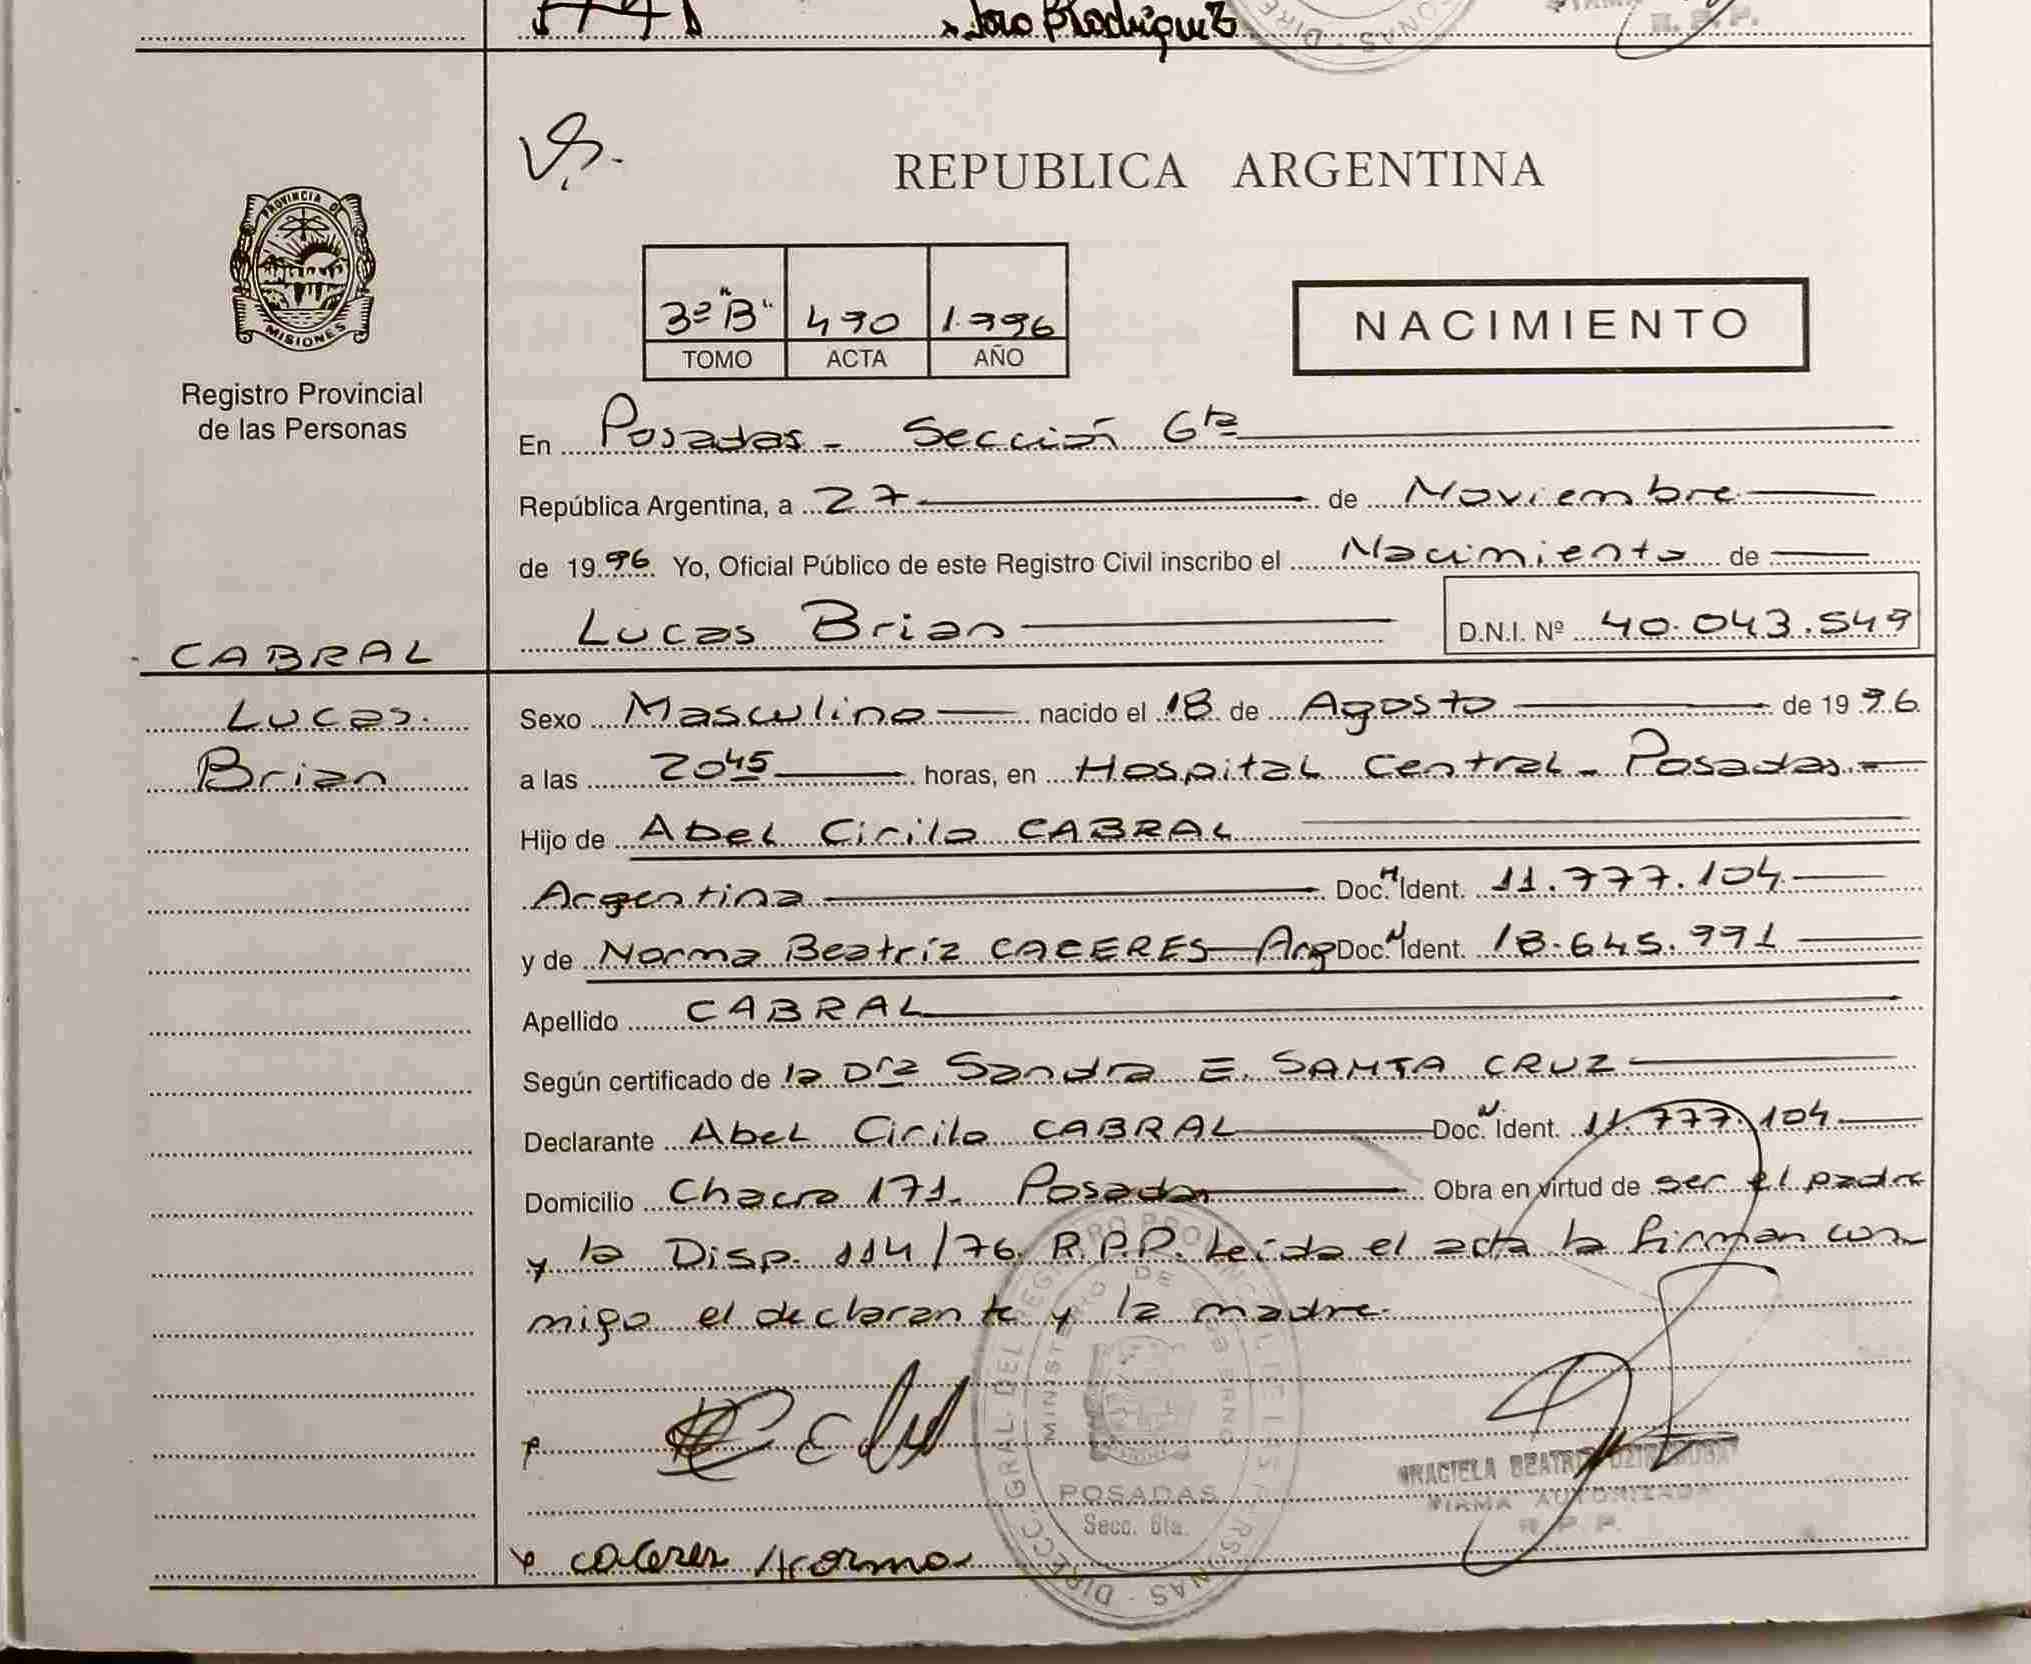 Joro Rodriguez
REPUBLICA ARGENTINA
PROVINCIA DE
MISIONES
Registro Provincial
de las Personas
3º "B" 490 1.996
TOMO ACTA AÑO
NACIMIENTO
En Posadas - Sección 6ta
República Argentina, a 27 de Noviembre
de 1996 Yo, Oficial Público de este Registro Civil inscribo el Nacimiento de
Lucas Brian D.N.I. Nº 40.043.549
CABRAL
Lucas.
Brian
Sexo Masculino nacido el 18 de Agosto de 1996
a las 20 45 horas, en Hospital Central - Posadas.
Hijo de Abel Cirilo CABRAL
Argentina Doc. N Ident. 11.777.104
y de Norma Beatríz CACERES - Arg Doc. N Ident. 18.645.991
Apellido CABRAL
Según certificado de la Dra Sandra E. SANTA CRUZ
Declarante Abel Cirilo CABRAL Doc. N Ident. 11.777.104
Domicilio Chacra 171. Posadas Obra en virtud de ser el padre
y la Disp. 114/76. R.P.P. Leída el acta la firman con
migo el declarante y la madre.
DIRECC. GRAL. DEL REGISTRO PROVINCIAL DE LAS PERSONAS
MINISTERIO DE GOBIERNO
POSADAS
Secc. 6ta.
GRACIELA BEATRIZ
FIRMA AUTORIZADA
R. P. P.
caceres Norma